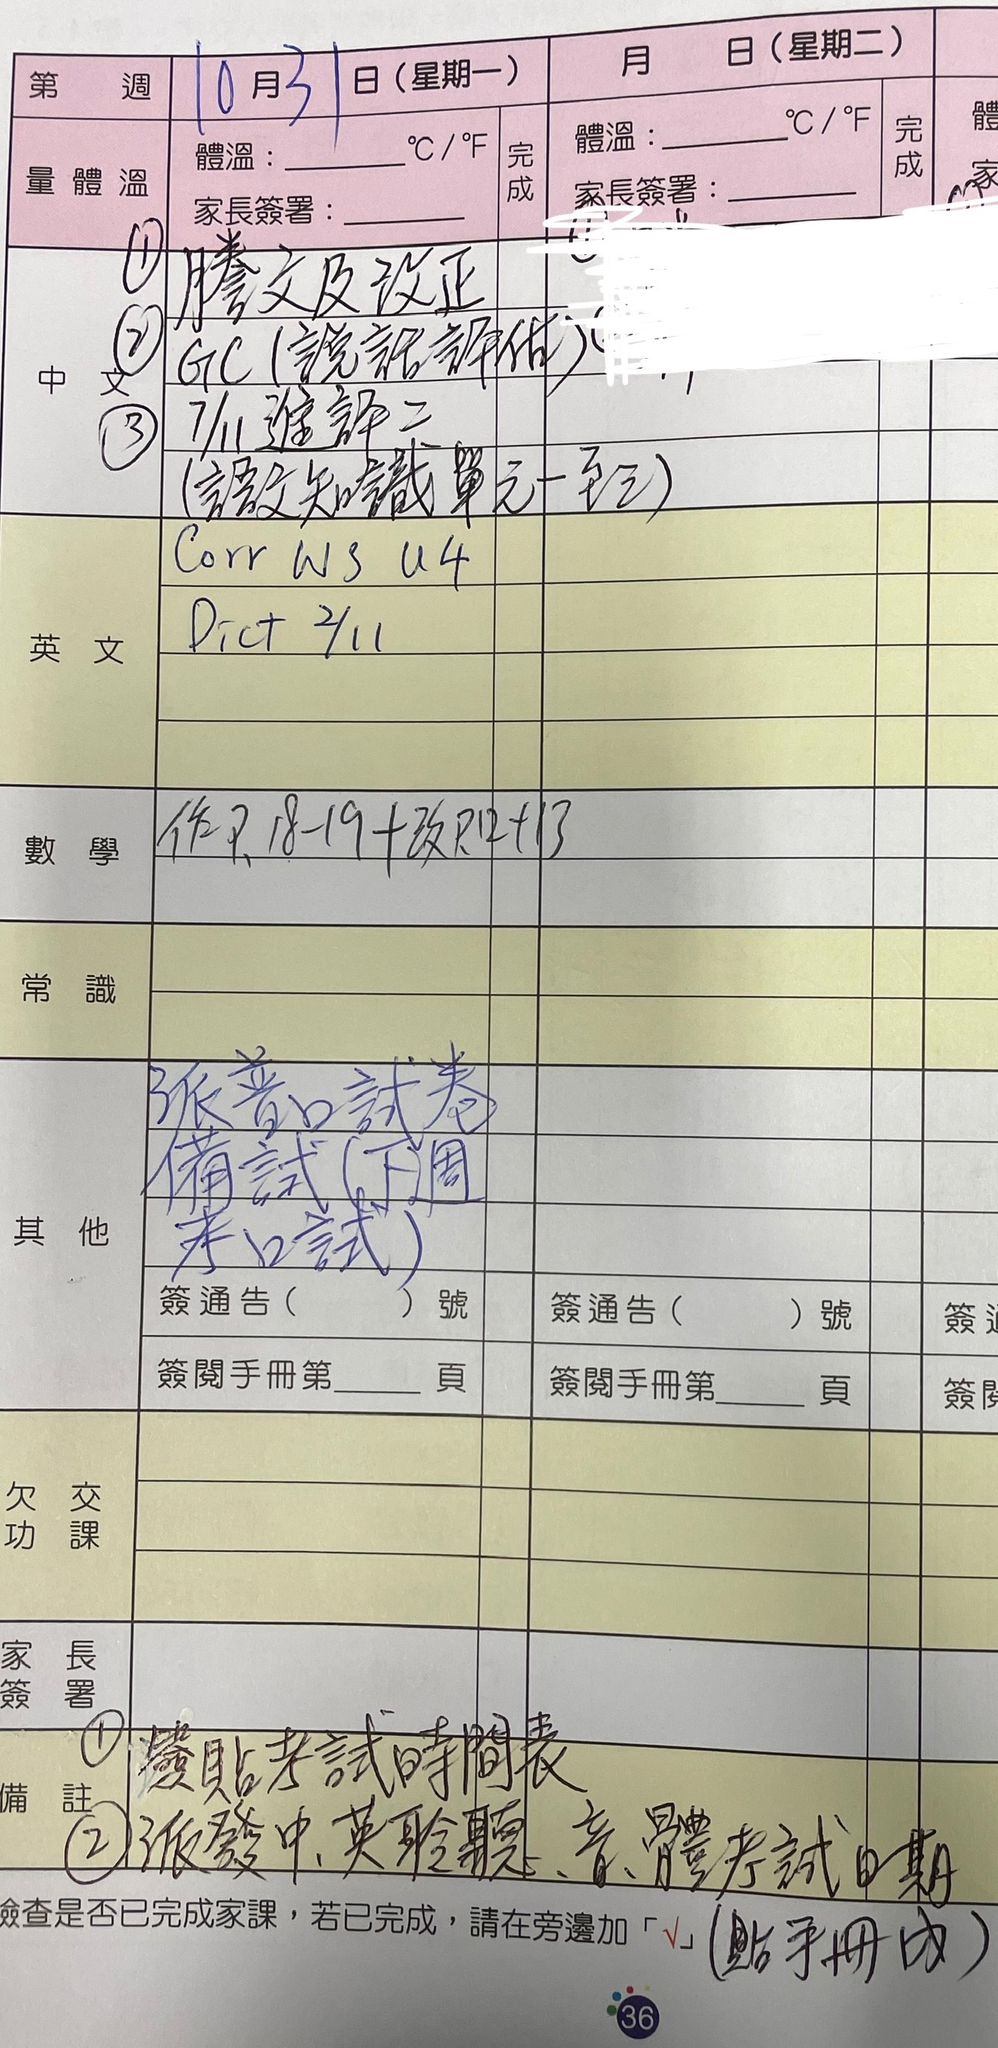 第 週 10月31日(星期一) 月 日(星期二)
量體溫 體溫：______℃/℉ 完成 體溫：______℃/℉ 完成 體
家長簽署：______ 家長簽署：______ 家
中文
① 謄文及改正
② GC(說話評估)
③ 7/11 進評二
(語文知識單元一至三)
英文
Corr WS U4
Dict 2/11
數學
作P.18-19+改P.12+13
常識
其他
派普口試卷
備試(下週
考口試)
簽通告( )號 簽通告( )號 簽通
簽閱手冊第_____頁 簽閱手冊第_____頁 簽閱
欠交功課
家長簽署
備註
① 發貼考試時間表
② 派發中、英聆聽、音、體考試日期
(貼手冊內)
檢查是否已完成家課，若已完成，請在旁邊加「√」
36